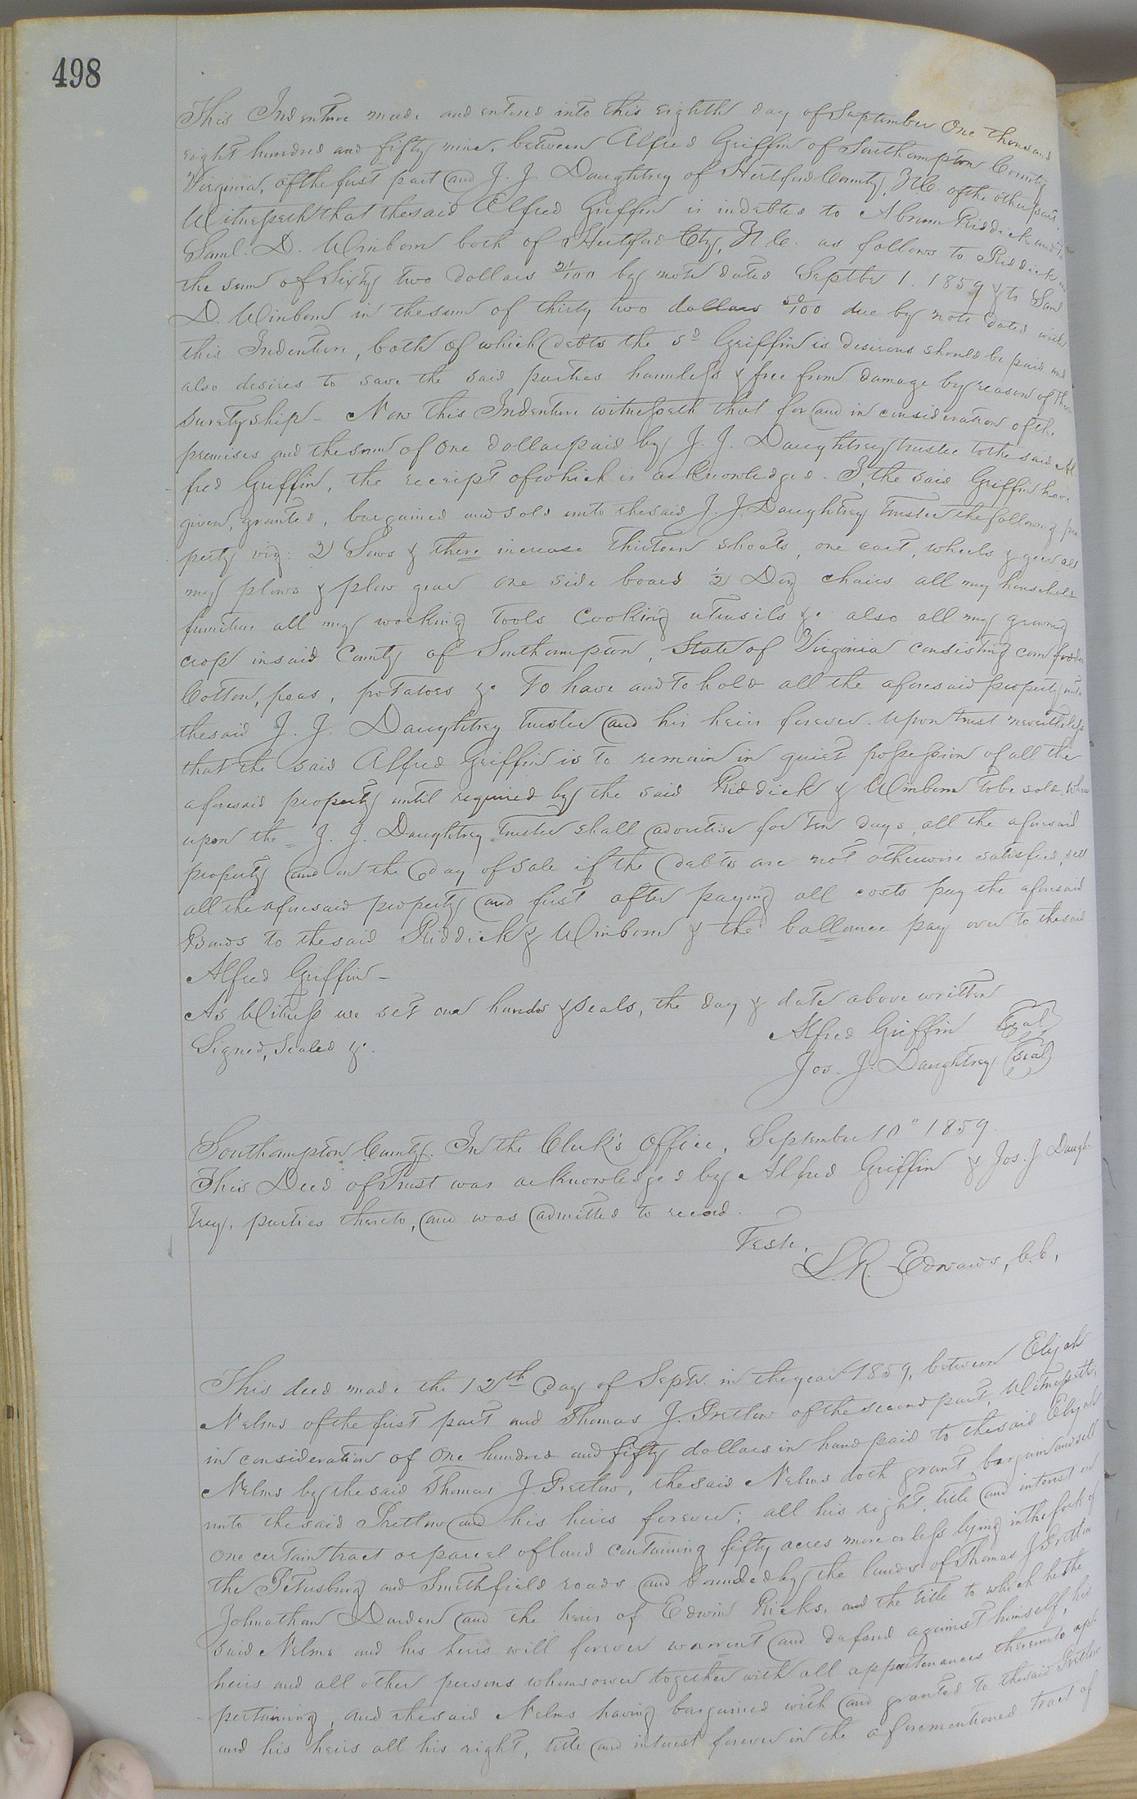 498
This Indenture made and entered into this eighth day of September One thousand
eight hundred and fifty nine, between Alfred Griffin of Southampton County
Virginia, of the first part and J. J. Daughtrey of Hertford County, N.C. of the other part
Witnesseth that the said Alfred Griffin is indebted to Abram Riddick and to
Saml. D. Winborn both of Hertford Cty, N.C. as follows to Riddick in
the sum of Sixty two dollars 21/100 by note dated Septbr 1. 1859 & to Saml
D. Winborn in the sum of thirty two dollars 50/100 due by note dated with
this Indenture, both of which debts the sd Griffin is desirous should be paid and
also desires to save the said parties harmless & free from damage by reason of their
suretyship - Now this Indenture witnesseth that for and in consideration of the
premises and the sum of One dollar paid by J. J. Daughtrey trustee to the said Al
fred Griffin, the receipt of which is acknowledged. I, the said Griffin have
given, granted, bargained and sold unto the said J. J. Daughtrey trustee the following pro
perty viz: 2 Sows & there increase thirteen shoats, one cart, wheels & gear all
my plows & plow gear one side board 1/2 Doz chairs all my household
furniture all my working tools Cooking utensils &c also all my growing
crop in said County of Southampton, State of Virginia consisting corn fodder
Cotton, peas, potatoes &c To have and to hold all the aforesaid property unto
the said J. J. Daughtrey trustee and his heirs forever. Upon trust nevertheless
that the said Alfred Griffin is to remain in quiet possession of all the
aforesaid property until required by the said Riddick & Winborn to be sold where
upon the J. J. Daughtrey Trustee shall advertise for ten days, all the aforesaid
property and on the day of sale if the debts are not otherwise satisfied, sell
all the aforesaid property and first after paying all costs pay the aforesaid
Bonds to the said Riddick & Winborn & the ballance pay over to the said
Alfred Griffin -
As Witness we set our hands & seals, the day & date above written
Alfred Griffin (Seal)
Signed, Sealed &c.
Jos. J. Daughtrey (Seal)
Southampton County. In the Clerk's Office, September 10" 1859.
This Deed of Trust was acknowledged by Alfred Griffin & Jos. J. Daugh-
trey, parties thereto, and was admitted to record.
Teste,
L. R. Edwards, C.C.
This deed made the 12th day of Septr. in the year 1859, between Elijah
Nelms of the first part and Thomas J. Pretlow of the second part, Witnesseth,
in consideration of One hundred and fifty dollars in hand paid to the said Elijah
Nelms by the said Thomas J. Pretlow, the said Nelms doth grant bargain and sell
unto the said Pretlow and his heirs forever; all his right, title and interest in
one certain tract or parcel of land containing fifty acres more or less lying in the fork of
the Petersburg and Smithfield roads and bounded by the lands of Thomas J. Pretlow
Johnathan Darden and the heirs of Edwin Ricks, and the title to which he the
said Nelms and his heirs will forever warrent and defend against himself, his
heirs and all other persons whomsoever together with all appertenances thereunto ap
pertaining, and the said Nelms having bargained with and granted to the said Pretlow
and his heirs all his right, title and interest forever in the aforementioned tract of